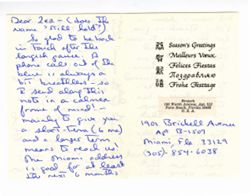 Dear Zea - (does the
name still hold?)
So glad to be back
in touch after the
longish pause. The
phone calls out of the
blue is always a
bit breathless - so
I send along this
note in a calmer
frame of mind -
mainly to give you
a short term (6 mo)
and a longer term
means to reach us
The Miami address
is good for at least
the next 6 months
Season's Greetings
Meilleurs Vœux
Felices Fiestas
Поздравляю
Frohe Festtage
Brickell Avenue
Ap B-1509
Miami, Fla 33129
(305) - 854-6038